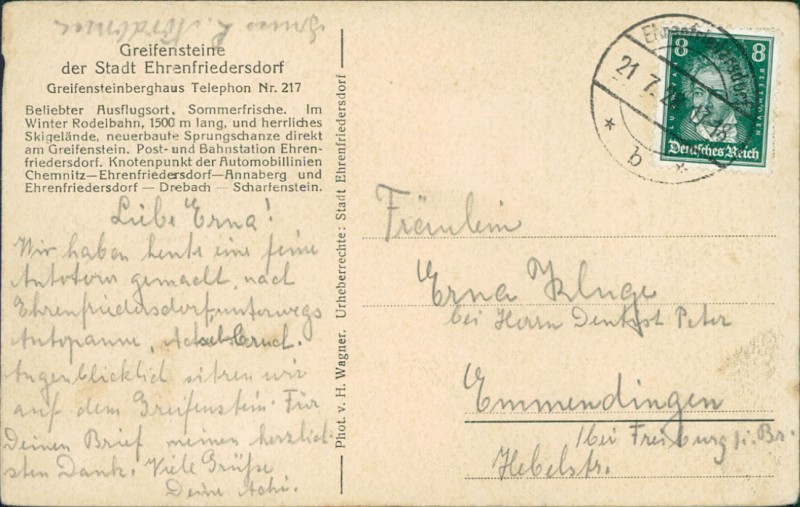 Greifensteine
der Stadt Ehrenfriedersdorf
Greifensteinberghaus Telephon Nr. 217
Beliebter Ausflugsort, Sommerfrische. Im
Winter Rodelbahn, 1500 m lang, und herrliches
Skigelände, neuerbaute Sprungschanze direkt
am Greifenstein. Post- und Bahnstation Ehren-
friedersdorf. Knotenpunkt der Automobillinien
Chemnitz—Ehrenfriedersdorf—Annaberg und
Ehrenfriedersdorf — Drebach — Scharfenstein.
Liebe Erna!
Wir haben heute eine feine
Autotour gemacht, nach
Ehrenfriedersdorf, unterwegs
Autopanne, Achsbruch.
Augenblicklich sitzen wir
auf dem Greifenstein. Für
Deinen Brief meinen herzlich-
sten Dank. Viele Grüße
Deine
Phot. v. H. Wagner. Urheberrechte: Stadt Ehrenfriedersdorf
Ehrenfriedersdorf
21 7
* b *
8 8
BEETHOVEN
Deutsches Reich
Fräulein
Erna Kluge
bei Herrn Dentist Peter
Emmendingen
bei Freiburg i. Br.
Hebelstr.